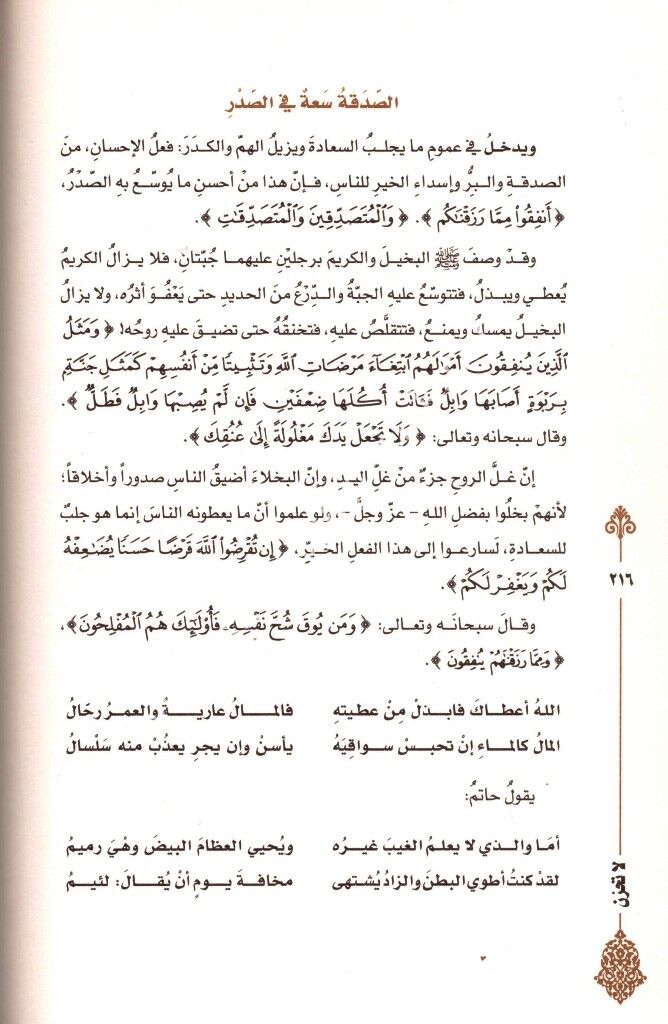 الصَدَقةُ سَعةٌ في الصَدْرِ
ويدخلُ في عمومِ ما يجلبُ السعادةَ ويزيلُ الهمَّ والكدَرَ: فعلُ الإحسانِ، منَ
الصدقةِ والبِرِّ وإسداءِ الخيرِ للناسِ، فإنّ هذا منْ أحسنِ ما يُوسّعُ بهِ الصّدْرُ،
﴿ أَنفِقُوا مِمَّا رَزَقْنَاكُم ﴾. ﴿ وَالْمُتَصَدِّقِينَ وَالْمُتَصَدِّقَاتِ ﴾.
وقدْ وصفَ ﷺ البخيلَ والكريمَ برجلينِ عليهما جُبّتانِ، فلا يزالُ الكريمُ
يُعطي ويبذلُ، فتتوسّعُ عليهِ الجبةُ والدِّرْعُ منَ الحديدِ حتى يَعْفُوَ أثرُه، ولا يزالُ
البخيلُ يمسكُ ويمنعُ، فتتقلّصُ عليهِ، فتخنقُهُ حتى تضيقَ عليهِ روحُه! ﴿ وَمَثَلُ
الَّذِينَ يُنفِقُونَ أَمْوَالَهُمُ ابْتِغَاءَ مَرْضَاتِ اللَّهِ وَتَثْبِيتًا مِّنْ أَنفُسِهِمْ كَمَثَلِ جَنَّةٍ
بِرَبْوَةٍ أَصَابَهَا وَابِلٌ فَآتَتْ أُكُلَهَا ضِعْفَيْنِ فَإِن لَّمْ يُصِبْهَا وَابِلٌ فَطَلٌّ ﴾.
وقال سبحانه وتعالى: ﴿ وَلَا تَجْعَلْ يَدَكَ مَغْلُولَةً إِلَىٰ عُنُقِكَ ﴾.
إنّ غلَّ الروحِ جزءٌ منْ غلِّ اليدِ، وإنّ البخلاءَ أضيقُ الناسِ صدوراً وأخلاقاً؛
لأنهمْ بخلُوا بفضلِ اللهِ – عزّ وجلَّ –، ولو علموا أنّ ما يعطونه الناسَ إنما هو جلبٌ
للسعادةِ، لَسارعوا إلى هذا الفعلِ الخيّرِ، ﴿ إِن تُقْرِضُوا اللَّهَ قَرْضًا حَسَنًا يُضَاعِفْهُ
لَكُمْ وَيَغْفِرْ لَكُمْ ﴾.
وقالَ سبحانَه وتعالى: ﴿ وَمَن يُوقَ شُحَّ نَفْسِهِ فَأُولَٰئِكَ هُمُ الْمُفْلِحُونَ ﴾،
﴿ وَمِمَّا رَزَقْنَاهُمْ يُنفِقُونَ ﴾.
اللهُ أعطاكَ فابذلْ مِنْ عطيتهِ فالمالُ عاريةٌ والعمرُ رحّالُ
المالُ كالماءِ إنْ تحبسْ سواقيَهُ يأسنْ وإن يجرِ يعذُبْ منه سَلْسالُ
يقولُ حاتمٌ:
أمَا والذي لا يعلمُ الغيبَ غيرُه ويُحيي العظامَ البيضَ وهْيَ رميمُ
لقد كنتُ أطوي البطنَ والزادُ يُشتهى مخافةَ يومٍ أنْ يُقالَ: لئيمُ
٢١٦
لا تحزن